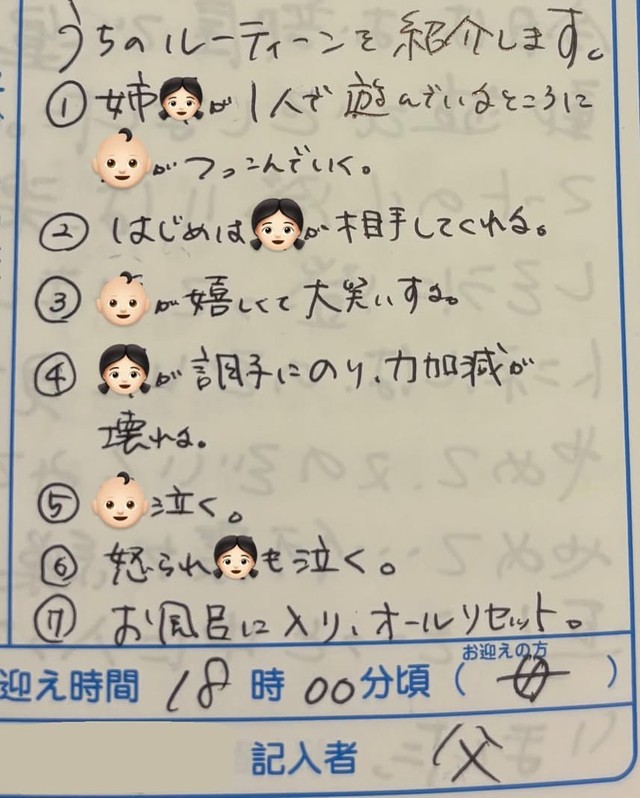 うちのルーティーンを紹介します。
① 姉👧が1人で遊んでいるところに
👶がつっこんでいく。
② はじめは👧が相手してくれる。
③ 👶が嬉しくて大笑いする。
④ 👧が調子にのり、力加減が
壊れる。
⑤ 👶泣く。
⑥ 怒られ👧も泣く。
⑦ お風呂に入り、オールリセット。
お迎えの方
迎え時間 18時00分頃 (母)
記入者 父